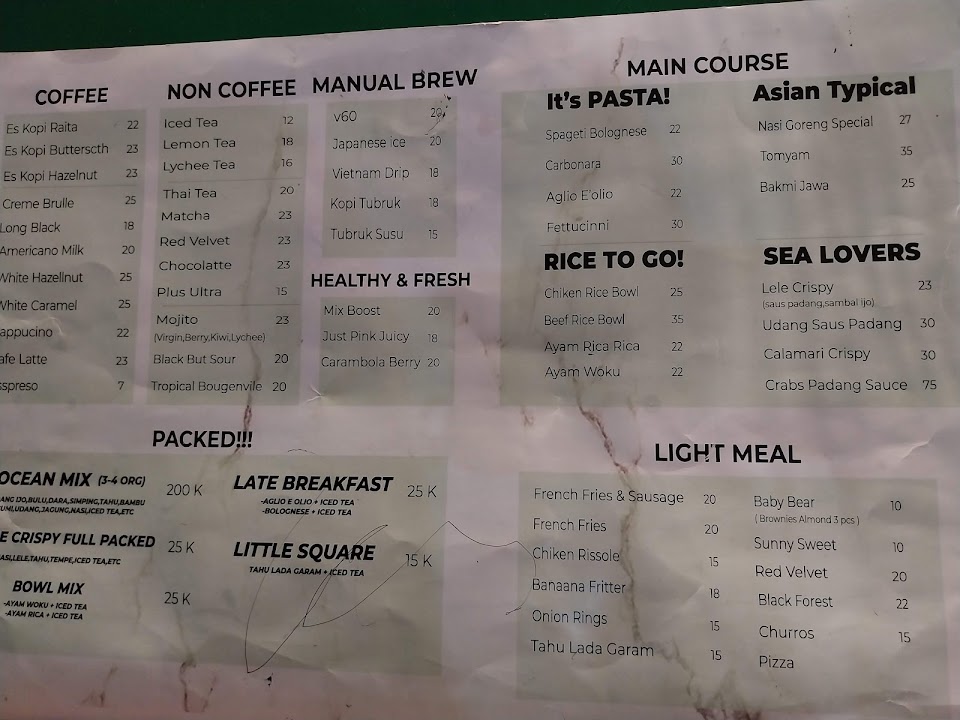 COFFEE
Es Kopi Raita 22
Es Kopi Butterscth 23
Es Kopi Hazelnut 23
Creme Brulle 25
Long Black 18
Americano Milk 20
White Hazellnut 25
White Caramel 25
appucino 22
afe Latte 23
spreso 7
NON COFFEE
Iced Tea 12
Lemon Tea 18
Lychee Tea 16
Thai Tea 20
Matcha 23
Red Velvet 23
Chocolatte 23
Plus Ultra 15
Mojito 23
(Virgin,Berry,Kiwi,Lychee)
Black But Sour 20
Tropical Bougenvile 20
MANUAL BREW
v60 20
Japanese ice 20
Vietnam Drip 18
Kopi Tubruk 18
Tubruk Susu 15
HEALTHY & FRESH
Mix Boost 20
Just Pink Juicy 18
Carambola Berry 20
MAIN COURSE
It's PASTA!
Spageti Bolognese 22
Carbonara 30
Aglio E'olio 22
Fettucinni 30
RICE TO GO!
Chiken Rice Bowl 25
Beef Rice Bowl 35
Ayam Rica Rica 22
Ayam Woku 22
Asian Typical
Nasi Goreng Special 27
Tomyam 35
Bakmi Jawa 25
SEA LOVERS
Lele Crispy 23
(saus padang,sambal ijo)
Udang Saus Padang 30
Calamari Crispy 30
Crabs Padang Sauce 75
PACKED!!!
OCEAN MIX (3-4 ORG) 200 K
ANG IJO,BULU,DARA,SIMPING,TAHU,BAMBU
UMI,UDANG,JAGUNG,NASI,ICED TEA,ETC
E CRISPY FULL PACKED 25 K
ASI,LELE,TAHU,TEMPE,ICED TEA,ETC
BOWL MIX 25 K
-AYAM WOKU + ICED TEA
-AYAM RICA + ICED TEA
LATE BREAKFAST 25 K
-AGLIO E OLIO + ICED TEA
-BOLOGNESE + ICED TEA
LITTLE SQUARE 15 K
TAHU LADA GARAM + ICED TEA
LIGHT MEAL
French Fries & Sausage 20
French Fries 20
Chiken Rissole 15
Banaana Fritter 18
Onion Rings 15
Tahu Lada Garam 15
Baby Bear 10
( Brownies Almond 3 pcs )
Sunny Sweet 10
Red Velvet 20
Black Forest 22
Churros 15
Pizza